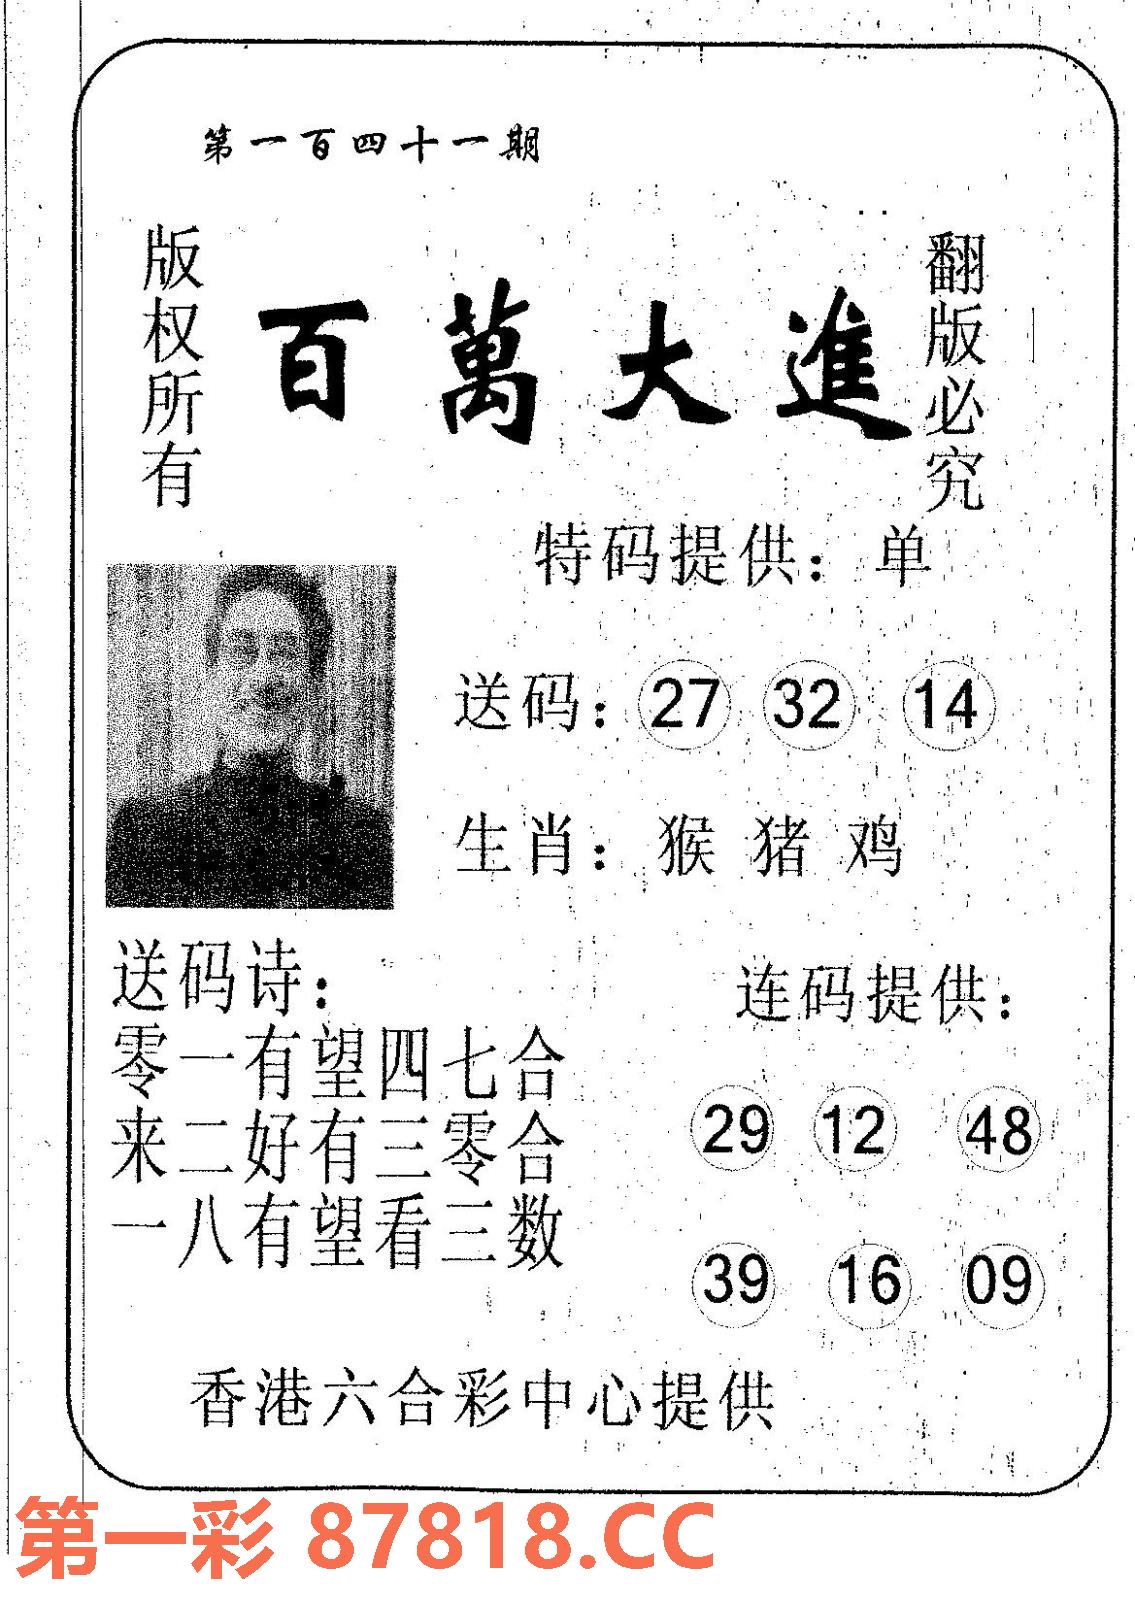 第一百四十一期
版权所有
百萬大進
翻版必究
特码提供：单
送码：27 32 14
生肖：猴 猪 鸡
送码诗：
零一有望四七合
来二好有三零合
一八有望看三数
连码提供：
29 12 48
39 16 09
香港六合彩中心提供
第一彩 87818.CC